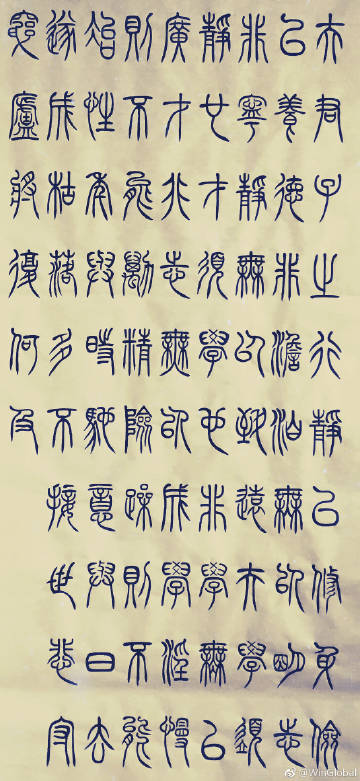 夫君子之行靜以修身儉
以養德非澹泊無以明志
非寧靜無以致遠夫學須
靜也才須學也非學無以
廣才非志無以成學淫慢
則不能勵精險躁則不能
冶性年與時馳意與日去
遂成枯落多不接世悲守
窮廬將復何及
@WinGlobal